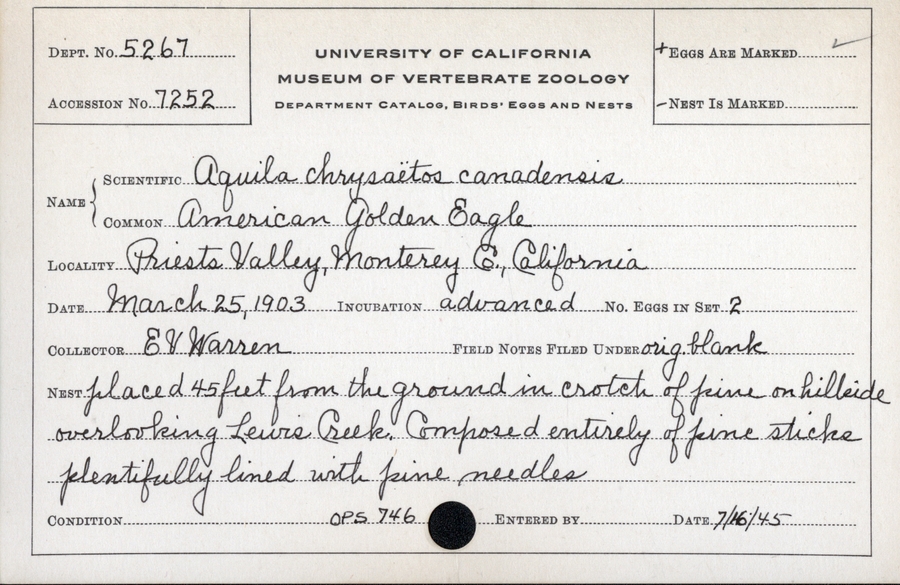 Dept. No. 5267
Accession No. 7252
UNIVERSITY OF CALIFORNIA
MUSEUM OF VERTEBRATE ZOOLOGY
Department Catalog, Birds' Eggs and Nests
+ Eggs Are Marked ✓
- Nest Is Marked
Name { Scientific Aquila chrysaëtos canadensis
Common American Golden Eagle
Locality Priests Valley, Monterey Co., California
Date March 25, 1903 Incubation advanced No. Eggs in Set 2
Collector E V Warren Field Notes Filed Under orig. blank
Nest placed 45 feet from the ground in crotch of pine on hillside
overlooking Lewis Creek. Composed entirely of pine sticks
plentifully lined with pine needles
Condition OPS 746 Entered by Date 7/16/45